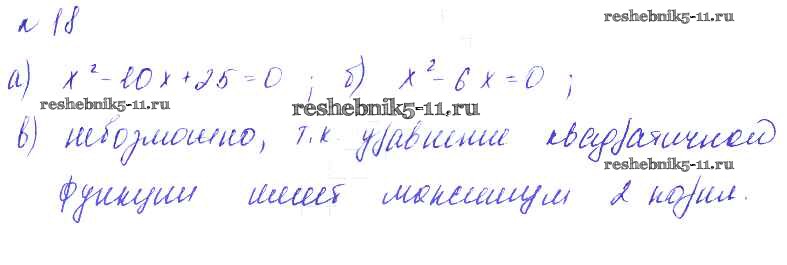 № 18
reshebnik5-11.ru
а) x² - 10x + 25 = 0 ; б) x² - 6x = 0 ;
reshebnik5-11.ru
reshebnik5-11.ru
в) невозможно, т.к. уравнение квадратичной
reshebnik5-11.ru
функции имеет максимум 2 корня.